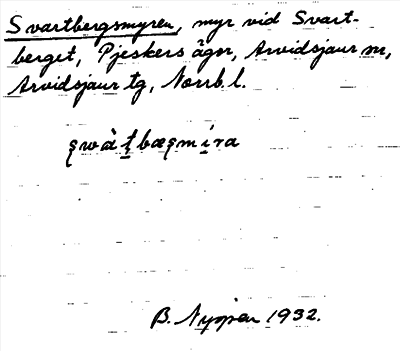 Svartbergsmyren, myr vid Svart-
berget, Pjeskers ägor, Arvidsjaur sn,
Arvidsjaur tg, Norrb. l.
B. Nyman 1932.